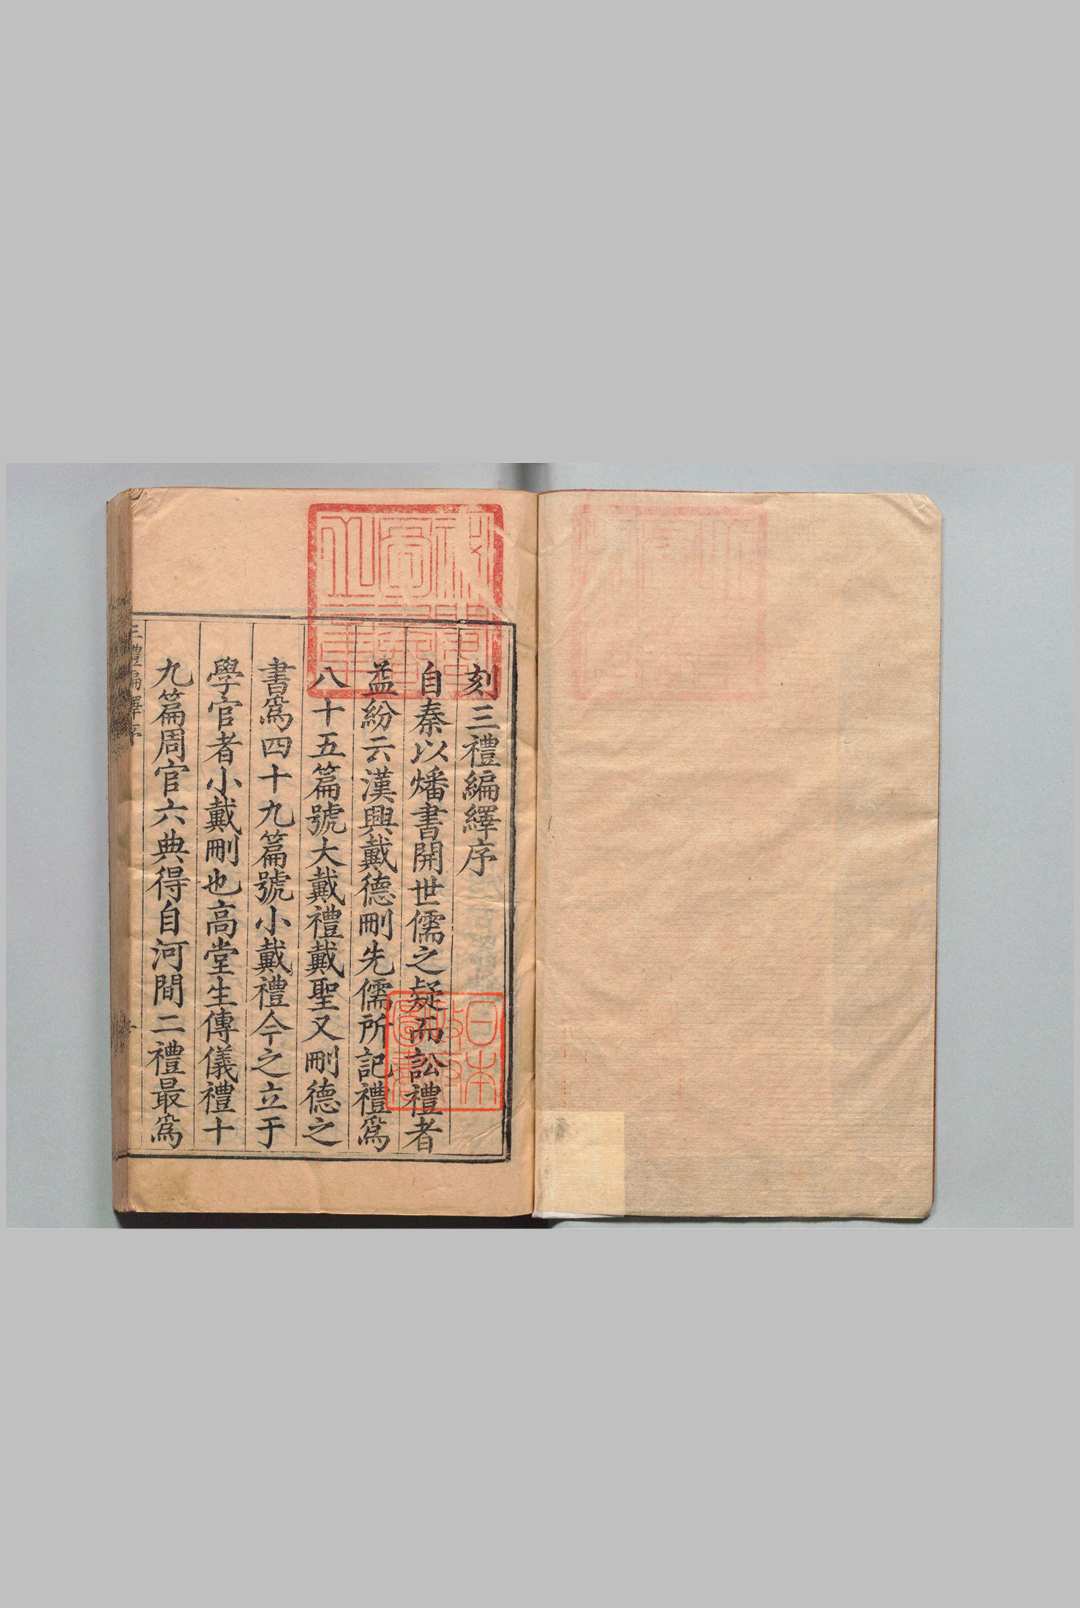 刻三禮編繹序
自秦以燔書開世儒之疑而訟禮者
益紛云漢興戴德刪先儒所記禮爲
八十五篇號大戴禮戴聖又刪德之
書爲四十九篇號小戴禮今之立于
學官者小戴刪也高堂生傳儀禮十
九篇周官六典得自河間二禮最爲
三禮編繹序
日本
政府
圖書